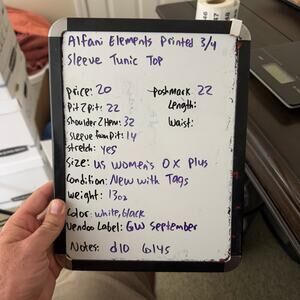 Alfani Elements Printed 3/4
Sleeve Tunic Top
price: 20
poshmark: 22
Pit 2 pit: 22
Length:
Shoulder 2 Hem: 32
Waist:
Sleeve from Pit: 14
stretch: yes
Size: US Women's 0X Plus
Condition: New with Tags
weight: 13oz
Color: white, black
Vendoo Label: GW September
Notes: d10 6145